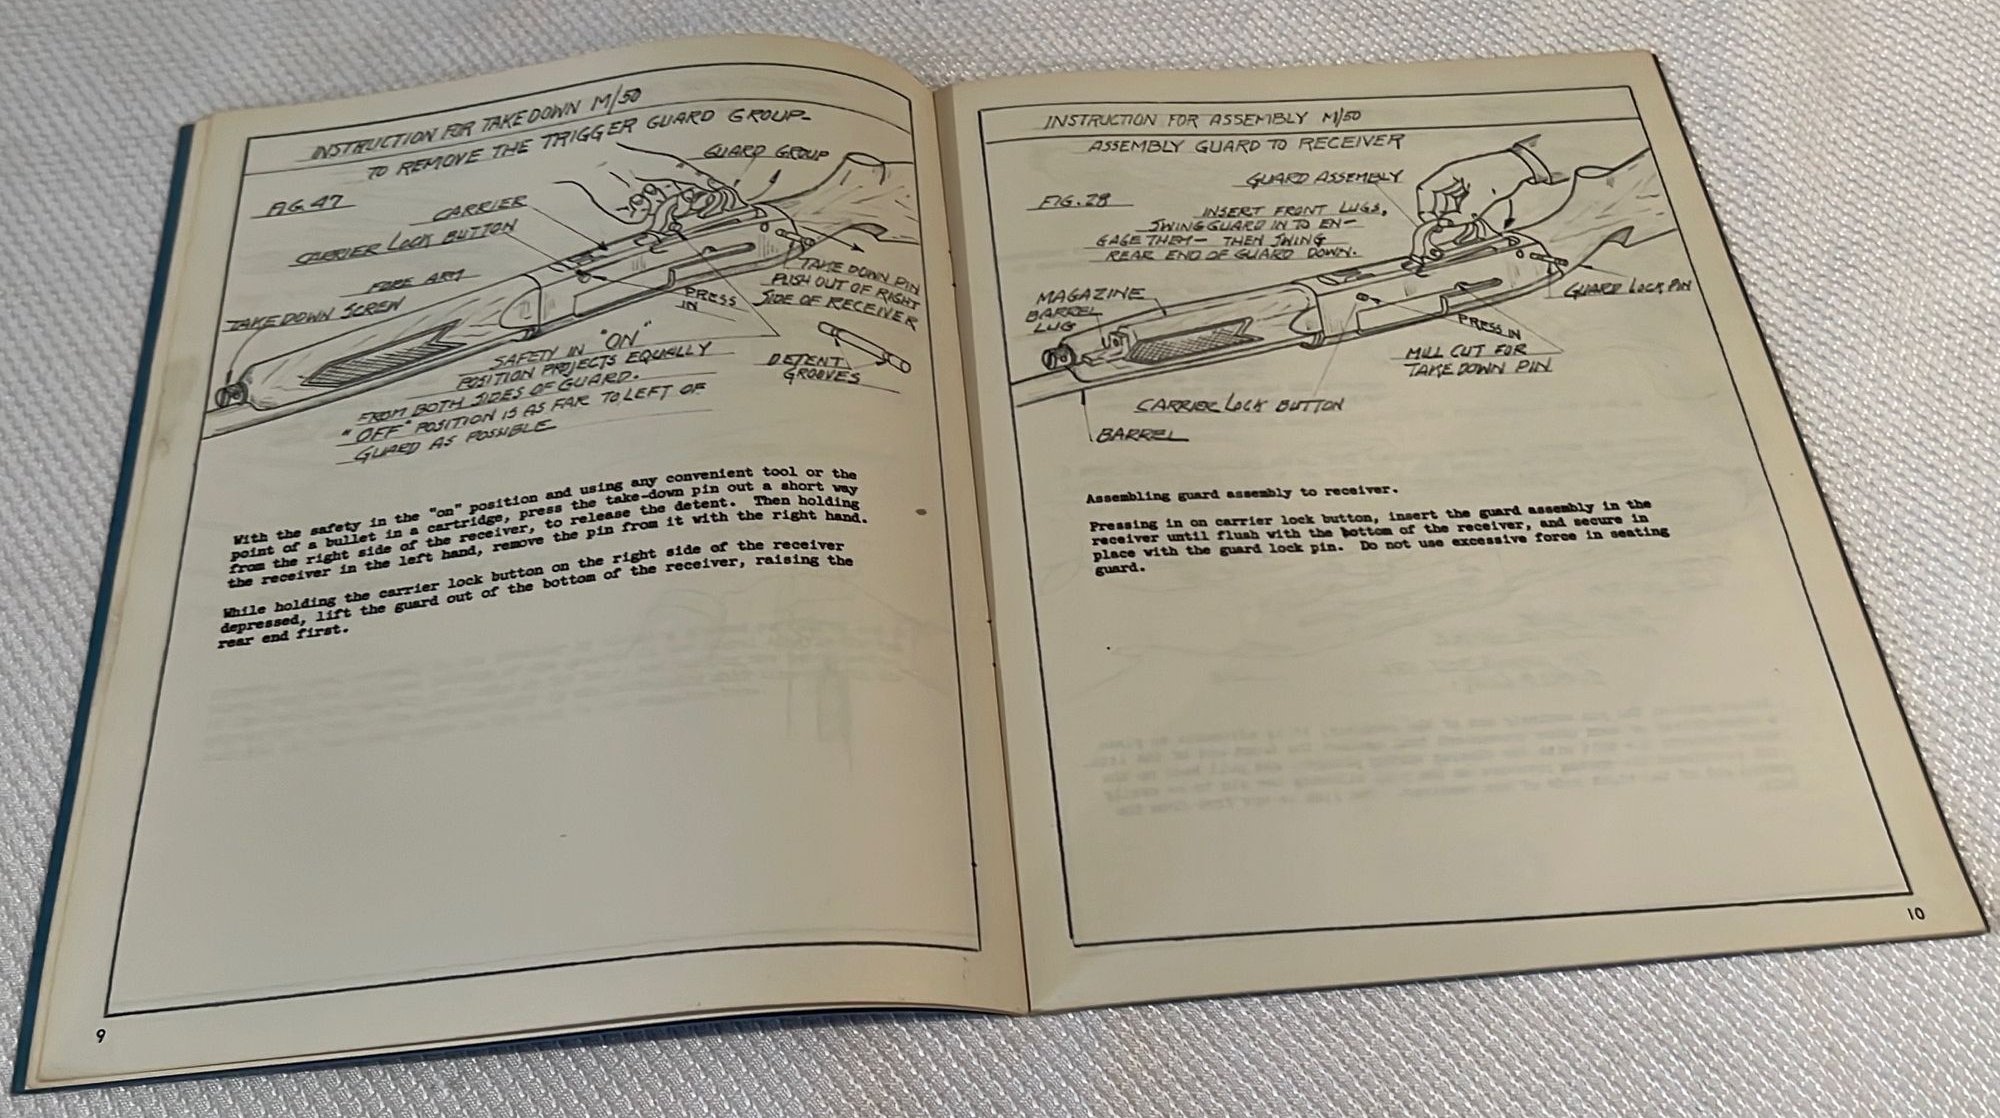 INSTRUCTION FOR TAKEDOWN M/50
TO REMOVE THE TRIGGER GUARD GROUP-
GUARD GROUP
FIG. 47
CARRIER
CARRIER LOCK BUTTON
FORE ARM
TAKE DOWN SCREW
TAKE DOWN PIN
PUSH OUT OF RIGHT
SIDE OF RECEIVER
PRESS
IN
SAFETY IN "ON"
POSITION PROJECTS EQUALLY
FROM BOTH SIDES OF GUARD.
"OFF" POSITION IS AS FAR TO LEFT OF
GUARD AS POSSIBLE
DETENT
GROOVES
With the safety in the "on" position and using any convenient tool or the
point of a bullet in a cartridge, press the take-down pin out a short way
from the right side of the receiver, to release the detent. Then holding
the receiver in the left hand, remove the pin from it with the right hand.
While holding the carrier lock button on the right side of the receiver
depressed, lift the guard out of the bottom of the receiver, raising the
rear end first.
9
INSTRUCTION FOR ASSEMBLY M/50
ASSEMBLY GUARD TO RECEIVER
GUARD ASSEMBLY
FIG. 28
INSERT FRONT LUGS,
SWING GUARD IN TO EN-
GAGE THEM- THEN SWING
REAR END OF GUARD DOWN.
MAGAZINE
BARREL
LUG
GUARD LOCK PIN
PRESS IN
MILL CUT FOR
TAKE DOWN PIN
CARRIER LOCK BUTTON
BARREL
Assembling guard assembly to receiver.
Pressing in on carrier lock button, insert the guard assembly in the
receiver until flush with the bottom of the receiver, and secure in
place with the guard lock pin. Do not use excessive force in seating
guard.
10